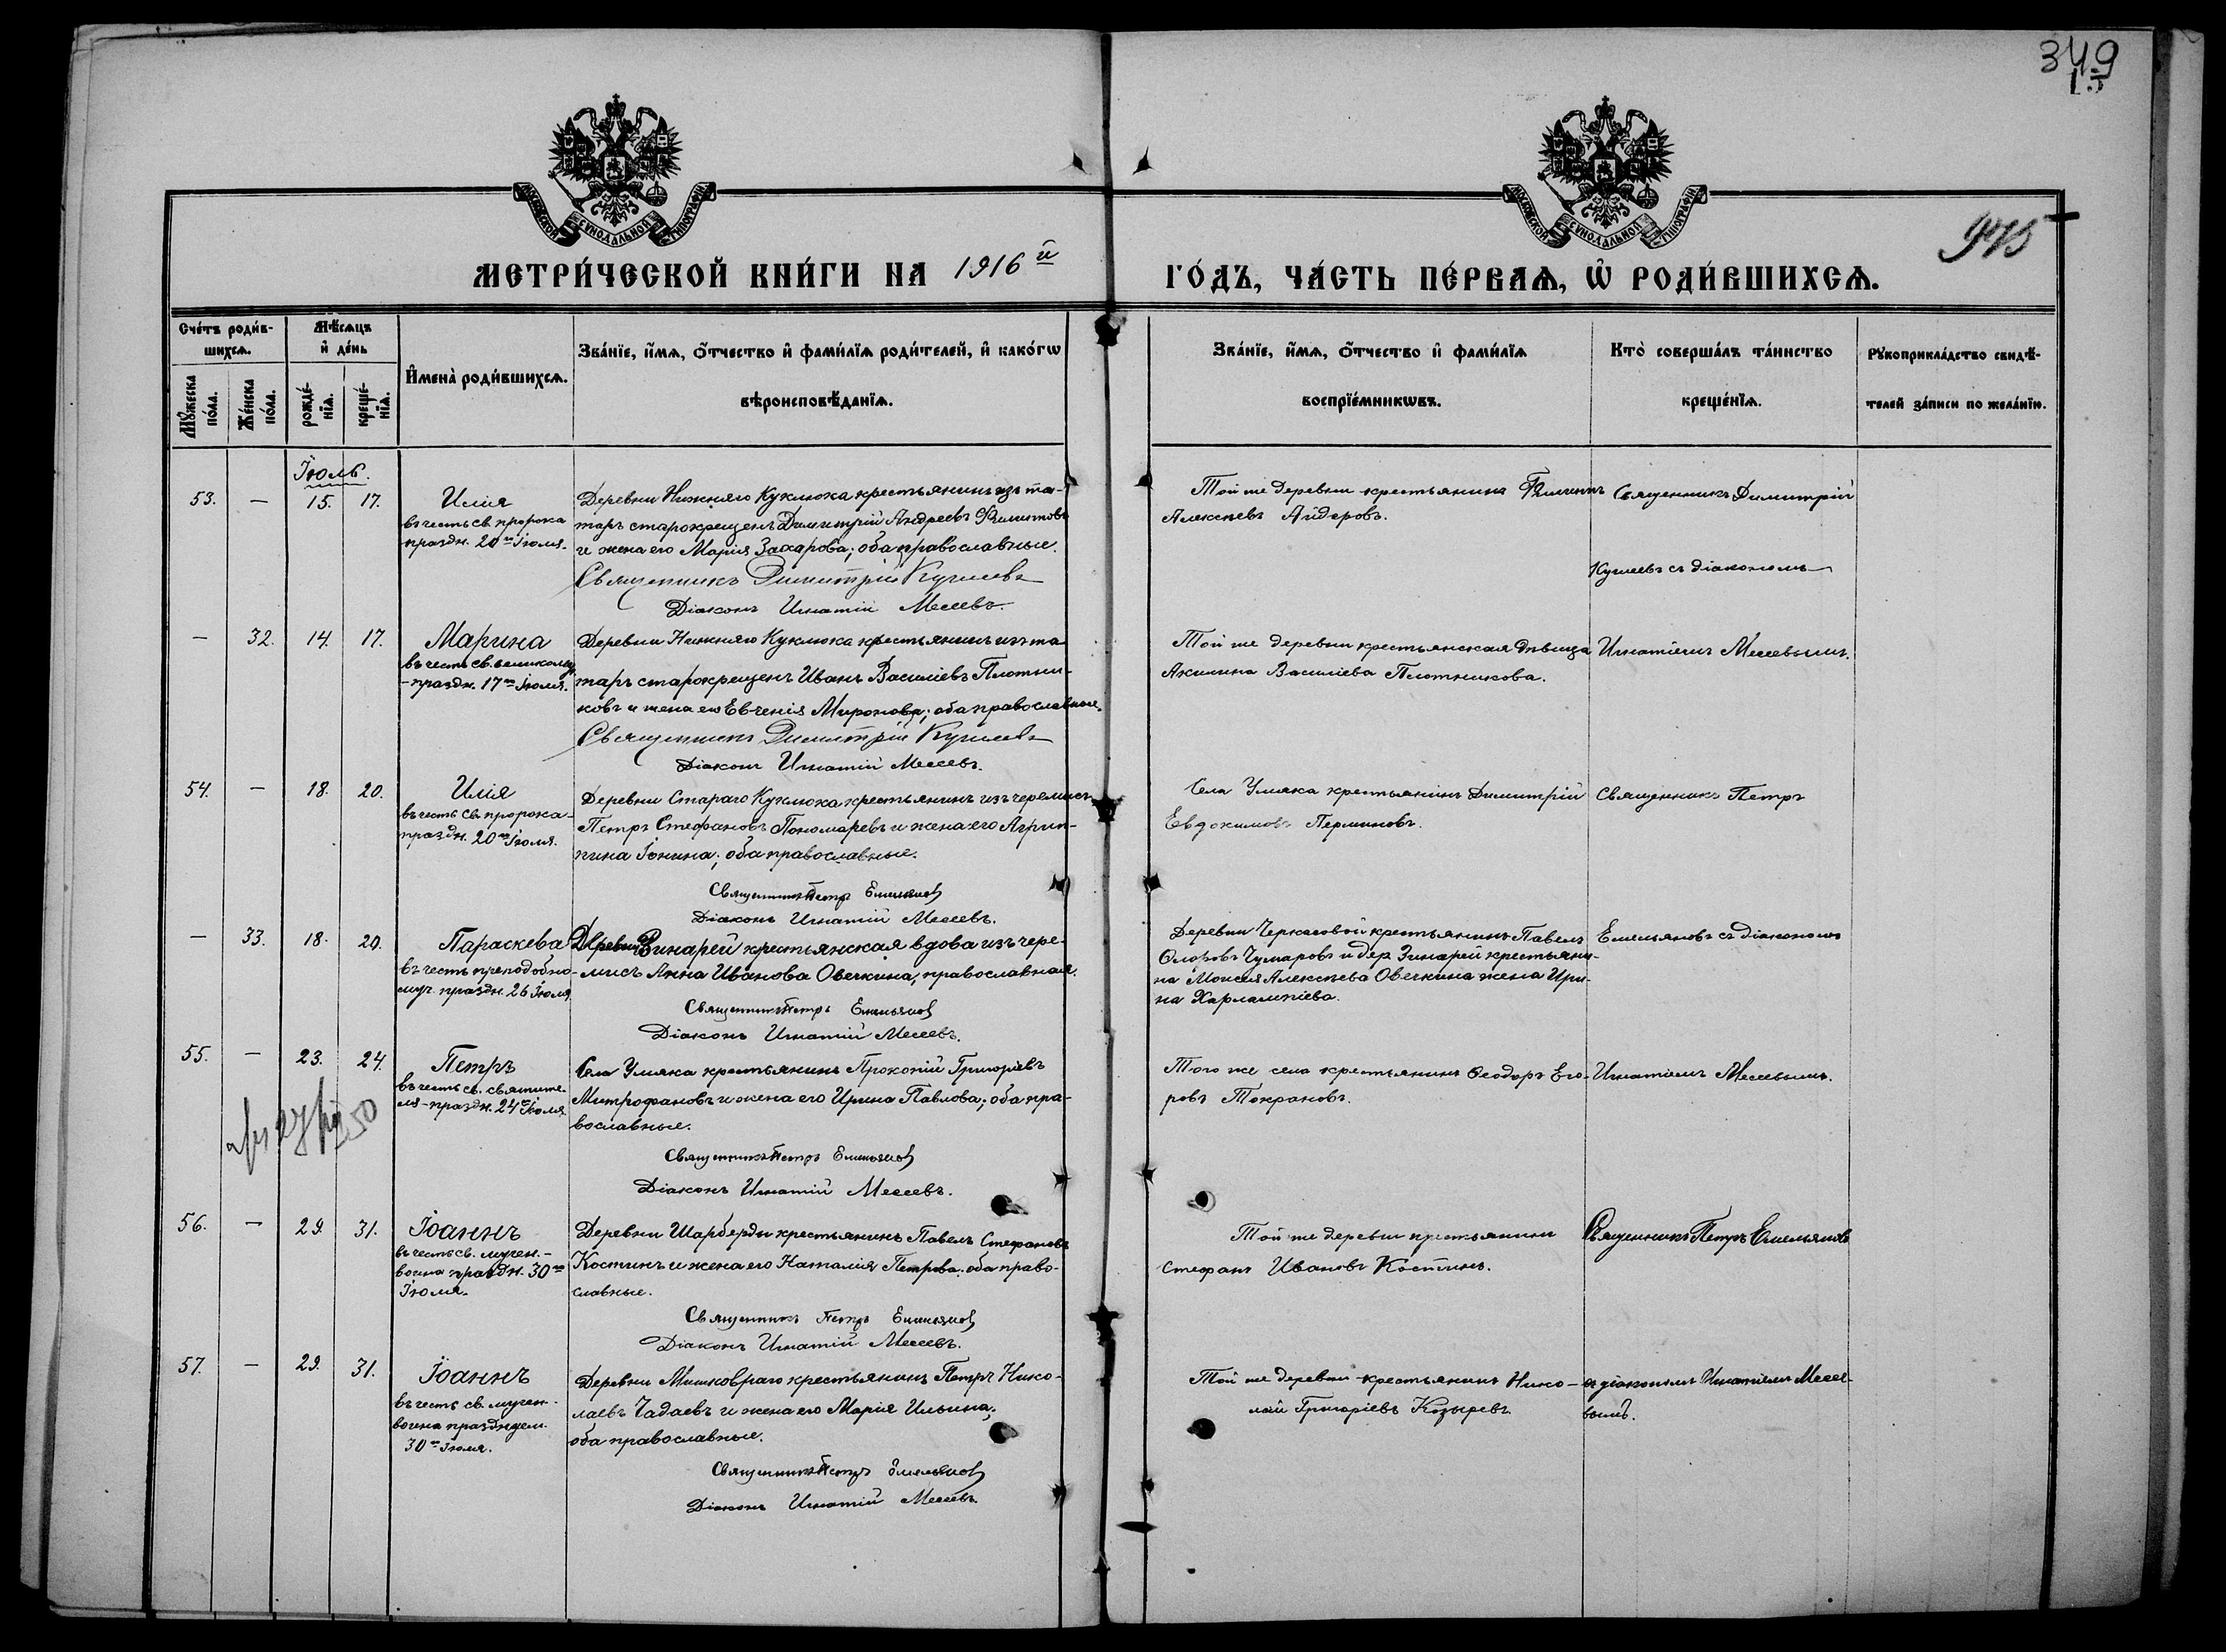 349
15
МОСКОВСКОЙ СѴНОДАЛЬНОЙ ТИПОГРАФІИ
МОСКОВСКОЙ СѴНОДАЛЬНОЙ ТИПОГРАФІИ
МЕТРИ́ЧЕСКОЙ КНИ́ГИ НА 1916й ГО́ДЪ, ЧА́СТЬ ПЕ́РВАѦ, Ѡ҆ РОДИ́ВШИХСѦ.
Сче́тъ роди́в-
шихсѧ.
Мꙋ́жеска по́ла.
Же́нска по́ла.
Мѣ́сѧцъ
и҆ де́нь
рожде́-
нїѧ.
креще́-
нїѧ.
И҆мена̀ роди́вшихсѧ.
Зва́нїе, и҆́мѧ, ѻ҆́тчество и҆ фами́лїѧ роди́телей, и҆ како́гѡ
вѣроисповѣ́данїѧ.
Зва́нїе, и҆́мѧ, ѻ҆́тчество и҆ фами́лїѧ
воспрїе́мникѡвъ.
Кто̀ соверша́лъ та́инство
креще́нїѧ.
Рꙋкоприкла́дство свидѣ́-
телей за́писи по жела́нїю.
Іюль.
53. — 15. 17. Илія
въ честь св. пророка
праздн. 20го Іюля.
Деревни Нижняго Куклюка крестьянинъ изъ та-
таръ старокрещенъ Димитрій Андреевъ Филиповъ
и жена его Марія Захарова; оба православные.
Священникъ Димитрій Кузмеевъ
Діаконъ Игнатій Месеевъ.
Той же деревни крестьянинъ Филиппъ
Алексѣевъ Айдеровъ.
Священникъ Димитрій
Кузмеевъ съ діакономъ
— 32. 14. 17. Марина
въ честь св. великомуч.
праздн. 17го Іюля.
Деревни Нижняго Куклюка крестьянинъ изъ та-
таръ старокрещенъ Иванъ Василіевъ Плотни-
ковъ и жена его Евгенія Миронова; оба православные.
Священникъ Димитрій Кузмеевъ
Діаконъ Игнатій Месеевъ.
Той же деревни крестьянская дѣвица
Акилина Василіева Плотникова.
Игнатіемъ Месеевымъ.
54. — 18. 20. Илія
въ честь св. пророка-
праздн. 20го Іюля.
Деревни Стараго Куклюка крестьянинъ изъ черемисъ
Петръ Стефановъ Пономаревъ и жена его Агрип-
пина Іонина; оба православные.
Священникъ Петръ Емельяновъ
Діаконъ Игнатій Месеевъ.
Села Умяка крестьянинъ Димитрій
Евдокимовъ Перминовъ.
Священникъ Петръ
— 33. 18. 20. Параскева
въ честь преподобно-
муч. праздн. 26 Іюля
Деревни Зинарей крестьянская вдова изъ чере-
мисъ Анна Иванова Овечкина, православная.
Священникъ Петръ Емельяновъ
Діаконъ Игнатій Месеевъ.
Деревни Черкасовой крестьянинъ Павелъ
Ѳлоровъ Чумаровъ и дер. Зинарей крестьяни-
на Моисея Алексѣева Овечкина жена Ири-
на Харлампіева.
Емельяновъ съ діакономъ
55. — 23. 24. Петръ
въ честь св. святите-
ля - праздн. 24го Іюля
Села Умяка крестьянинъ Прокопій Григоріевъ
Митрофановъ и жена его Ирина Павлова; оба пра-
вославные.
Священникъ Петръ Емельяновъ
Діаконъ Игнатій Месеевъ.
Того же села крестьянинъ Ѳеодоръ Его-
ровъ Токрановъ.
Игнатіемъ Месеевымъ.
56. — 29. 31. Іоаннъ
въ честь св. мучен.-
воина праздн. 30го
Іюля.
Деревни Шарберды крестьянинъ Павелъ Стефановъ
Костинъ и жена его Наталія Петрова; оба право-
славные.
Священникъ Петръ Емельяновъ
Діаконъ Игнатій Месеевъ.
Той же деревни крестьянинъ
Стефанъ Ивановъ Костинъ.
Священникъ Петръ Емельяновъ
57. — 29. 31. Іоаннъ
въ честь св. мучен.
воина празднуем.
30го Іюля.
Деревни крестьянинъ Петръ Нико-
лаевъ Чадаевъ и жена его Марія Ильина;
оба православные.
Священникъ Петръ Емельяновъ
Діаконъ Игнатій Месеевъ.
Той же деревни крестьянинъ Нико-
лай Григоріевъ Козыревъ.
съ діакономъ Игнатіемъ Месее-
вымъ.